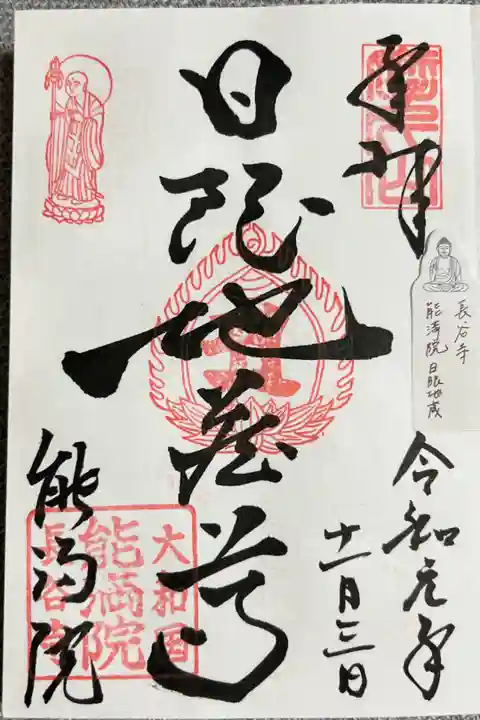 奉拝
長谷寺
能満院 日限地蔵
令和元年
十一月三日
日限地蔵尊
能満院
大和国
能満院
長谷寺